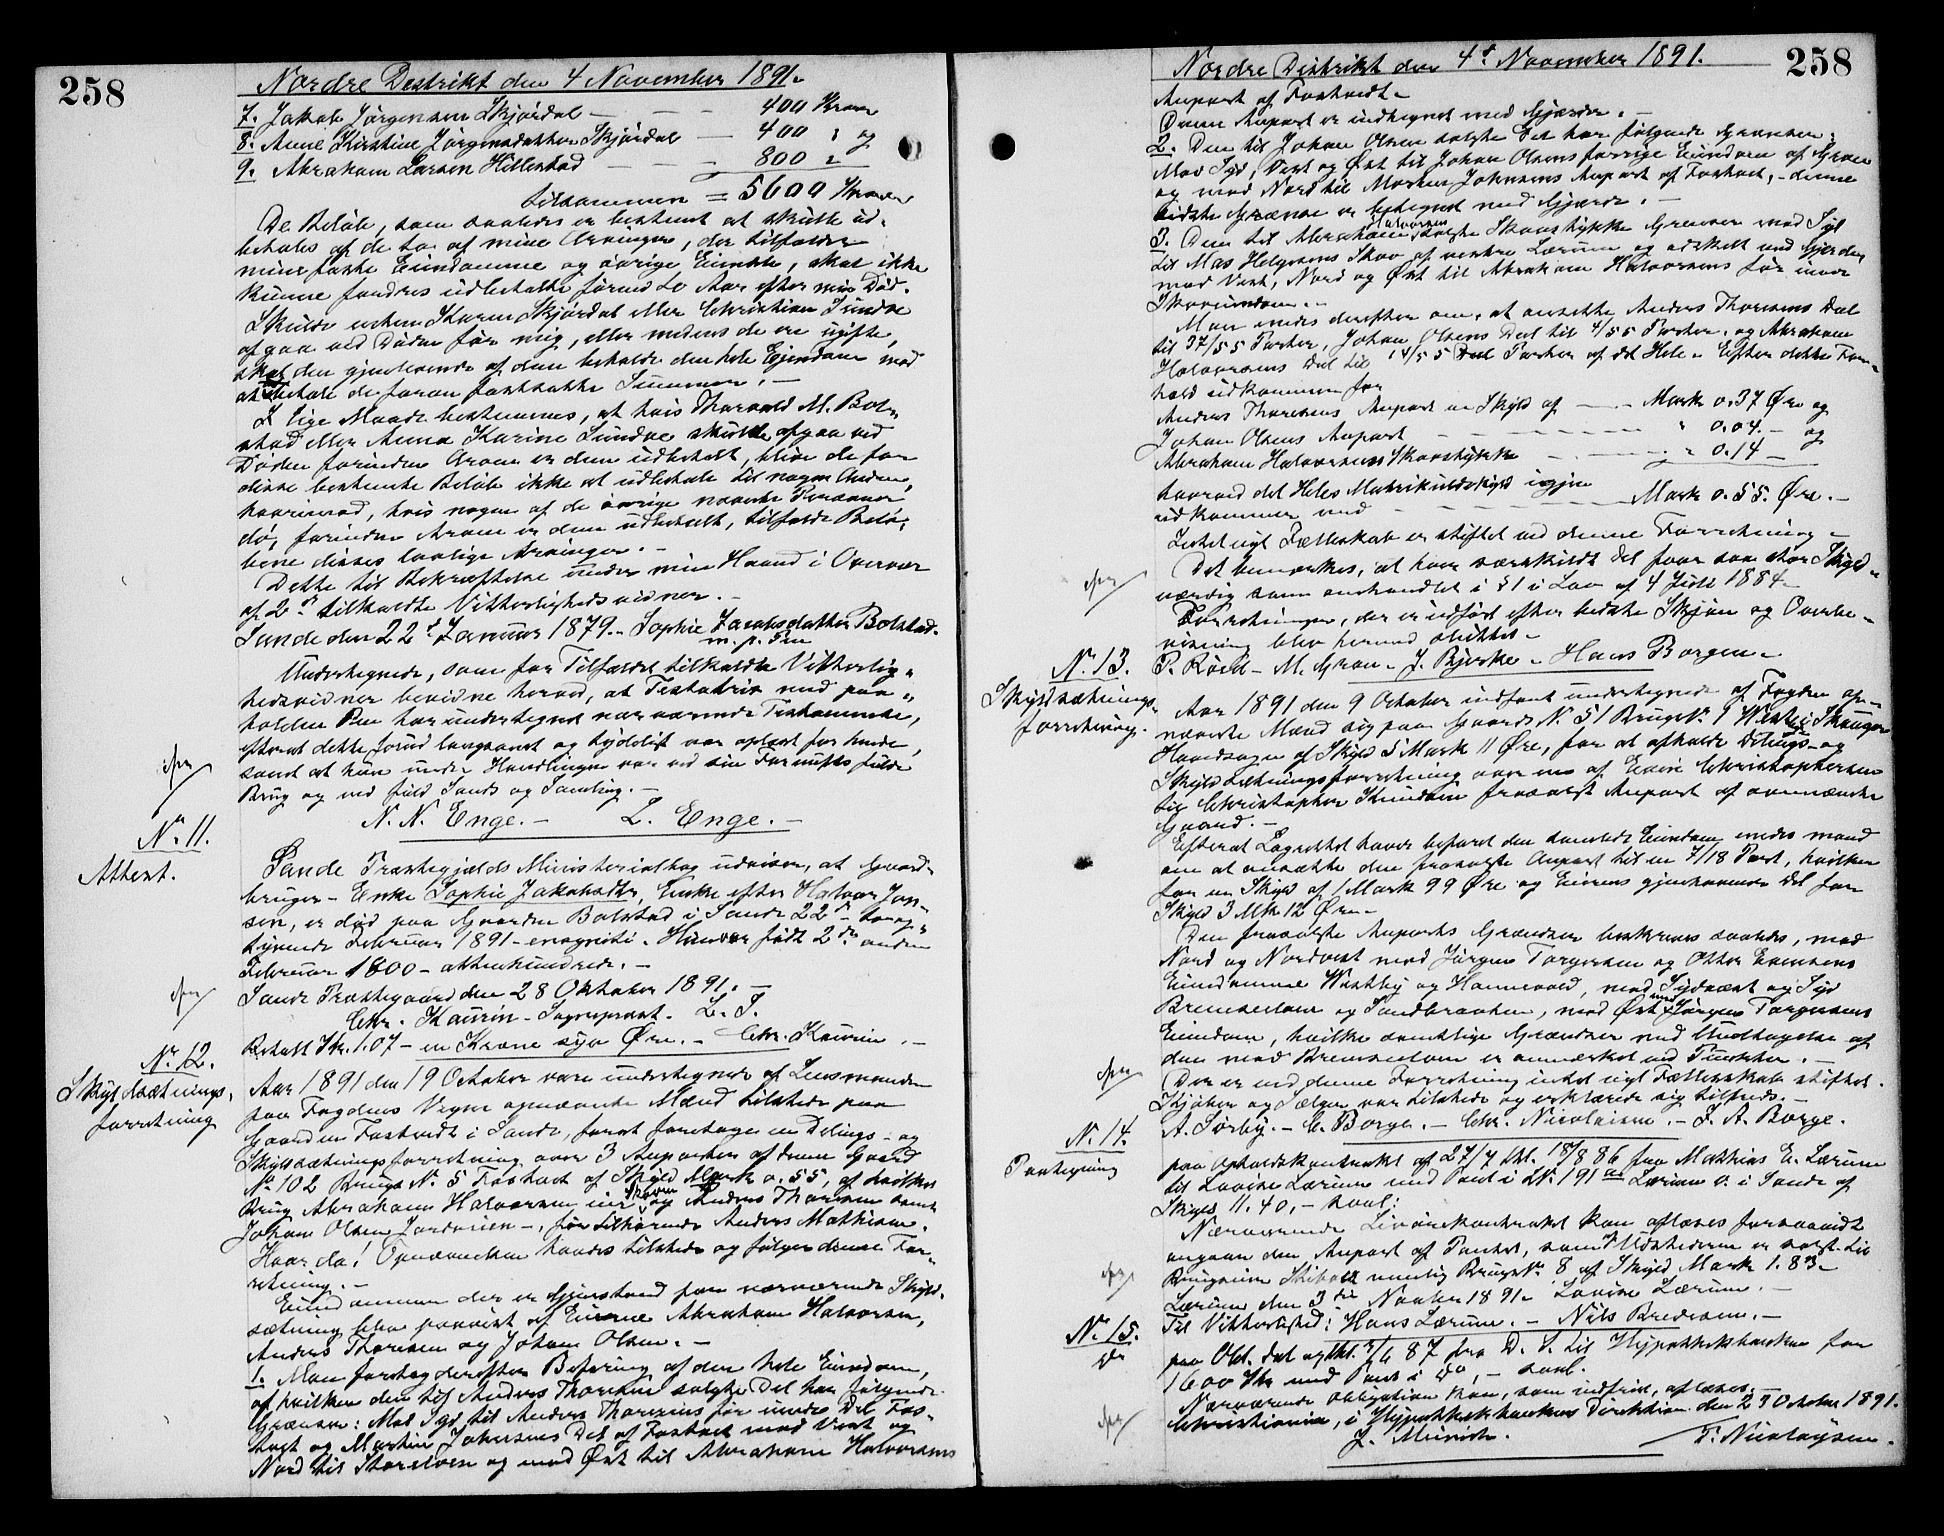 258
Nordre Destrikt den 4 November 1891.
7. Jakob Jørgensen Skjørdal — 400 Kroner
8. Anne Kirstine Jørgensdatter Skjørdal — 400 " og
9. Abraham Larsen Hillestad — 800 "
tilsammen = 5600 Kroner
De Beløb, som saaledes er bestemt at skulle ud-
betales af de to af mine Arvinger, der tilfalder
mine faste Eiendomme og øvrige Eiendele, skal ikke
kunne fordres udbetalte førend to Aar efter min Død.
Skulde enten Karen Skjørdal eller Christian Sundve
afgaa ved Døden før mig, eller medens de ere ugifte,
skal den gjenlevende af dem beholde den hele Eiendom mod
at udbetale de foran fastsatte Summer. —
I lige Maade bestemmes, at hvis Thorvald M. Bol-
stad eller Anna Karine Sundve skulde afgaa ved
Døden forinden Arven er dem udbetalt, blive de for
disse bestemte Beløb ikke at udbetale til nogen Anden,
hvorimod, hvis nogen af de øvrige nævnte Personer
dø, forinden Arven er dem udbetalt, tilfalde Belø-
bene disses lovlige Arvinger. —
Dette til Bekræftelse under min Haand i Overvær
af 2de tilkaldte Vitterlighedsvidner. —
Sande den 22de Januar 1879. Sophie Jacobsdatter Bolstad.
m. p. Pen
Undertegnede, som for Tilfældet tilkaldte Vitterlig-
hedsvidner bevidne herved, at Testatrix med paa-
holden Pen har undertegnet nærværende Testamente,
efterat dette forud langsomt og tydeligt var oplæst for hende,
samt at hun under Handlingen var ved sin Fornufts fulde
Brug og ved fuld Sands og Samling. —
N. N. Enge. — L. Enge. —
No 11.
Attest.
Sande Præstegjelds Ministerialbog udviser, at Gaard-
bruger-Enke Sophie Jakobsdtr, Enke efter Halvor Jan-
sen, er død paa Gaarden Bolstad i Sande 22de – to og
tyvende Februar 1891 – enognitti. Hun var født 2den anden
Februar 1800 – attenhundrede. —
Sande Præstegaard den 28 Oktober 1891. —
Chr. Kaurin – Sogneprest. L. S.
Betalt Kr. 1.07 – en Krone syv Øre. – Chr. Kaurin. —
No 12.
Skyldsætnings-
forretning
Aar 1891 den 19 October vare undertegnede af Lensmanden
paa Fogdens Vegne opnævnte Mænd tilstede paa
Gaarden Fostevedt i Sande, forat foretage en Delings- og
Skyldsætningsforretning over 3 Anparter af denne Gaard
No 102 Brugs No 5 Foshart af Skyld Mark 0.55, af hvilket
Brug Abraham Halvorsen eier Skoven og Anders Thoresen samt
Johan Olsen Jordveien —, før tilhørende Anders Mathisen.
Hvor da! Opnævnelsen havdes tilstede og følger denne For-
retning. —
Eiendommen der er Gjenstand for nærværende Skyld-
sætning blev paavist af Eierne Abraham Halvorsen,
Anders Thoresen og Johan Olsen. —
1. Man foretog derefter Befaring af den hele Eiendom,
af hvilken den til Anders Thoresen solgte Del har følgende
Grænser: Mod Syd til Anders Thoresens før eiende Del Fos-
tvet og Martin Johnsens Del af Fostvet mod Vest og
Nord til Storelven og mod Øst til Abraham Halvorsens
258
Nordre Distrikt den 4de November 1891.
Anpart af Fostvedt –
Denne Anpart er indhegnet med Gjærde. —
2. Den til Johan Olsen solgte Del har følgende Grænser:
Mod Syd, Vest og Øst til Johan Olsens forrige Eiendom af Gran
og mod Nord til Martin Johnsens Anpart af Fostvet, – denne
sidste Grænse er behegnet med Gjærde. —
3. Den til Abraham Halvorsen solgte Skovstykke Grenser mod Syd
til Mas Helgesens Skov af vestre Lærum og adskilt med Gjærde,
mod Vest, Nord og Øst til Abraham Halvorsens før iører
Skoveiendom. —
Man enedes derefter om, at ansætte Anders Thoresens Del
til 37/55 Parter, Johan Olsens Del til 4/55 Parter, og Abraham
Halvorsens Del til 14/55 Parter af det Hele. Efter dette For-
hold udkommer for
Anders Thoresens Anpart en Skyld af — Mark 0.37 Øre og
Johan Olsens Anpart — " 0.04. – og
Abraham Halvorsens Skovstykke — " 0.14 —
hvorved det Heles Matrikulskyld igjen
udkommer med — Mark 0.55. Øre. —
Intet nyt Fælleskab er stiftet ved denne Forretning –
Det bemærkes, at hver særskildt Del faar saa stor Skyld-
værdig som omhandlet i § 1 i Lov af 4 Juli 1884 —
Forretningen, der er udført efter bedste Skjøn og Overbe-
visning blev hermed sluttet –
P. Röed – M. Gran. J. Bjerke – Hans Borgen –
No 13.
Skyldsætnings-
forretning.
Aar 1891 den 9 October indfant undertegnede af Fogden op-
nævnte Mænd sig paa Gaards No 51 Brugs No 1 Westby i Skouger
Hovedsogn af Skyld 5 Mark 11 Øre, for at afholde Delings- og
Skyldsætningsforretning over en af Eieren Christophersen
til Christopher Knudsen frasolgt Anpart af ovennævnte
Gaard. —
Efterat Lagrettet havde befaret den samlede Eiendom enedes mand
om at ansætte den frasolgte Anpart til en 7/18 Part, hvilken
faar en Skyld af 1 Mark 99 Øre og Eierens gjenhavende Del faar
Skyld 3 Mk 12 Øre –
Den frasolgte Anparts Grændser beskrives saaledes, mod
Nord og Nordvest med Jørgen Torgersen og Otter Evensens
Eiendomme Westby og Hannevold, mod Sydvest og Syd
Bremsedam og Sandbraaten, mod Øst med Jörgen Torgersens
Eiendom, hvilke samtlige Grændser med Undtagelse af
den mod Bremsedam er anmærket ved Pinnter. —
Der er ved denne Forretning intet nyt Fælleskab stiftet.
Kjøber og Sælger var tilstede og erklærede sig tilfreds. —
A. Sørby. – C. Borge. – Chr. Nicolaisen. – J. A. Borge.
No 14.
Paategning
paa Opholdskontrakt af 27/7 tlst. 18/8 86 fra Mathias E. Lærum
til Lovise Lærum med Pant i LNo 191 Lærum v. i Sande af
Skyld 11.40, – saal:
Nærværende Livørekontrakt kan aflæses forsaavidt
angaar den Anpart af Pantet, som Udstederen er solgt til
nemlig Brugs No 8 af Skyld Mark 1.83 –
Lærum den 3die Novbr 1891. Lovise Lærum. —
Til Vitterlighed: Hans Lærum. – Nils Bredesen. —
No 15.
do
paa Obl. dat og tlst. 5/6 87 fra D. S. til Hypothekbanken for
1600 Kr med Pant i do, – saal.
Nærværende Obligation kan, som indfriet, aflæses. —
Christiania, i Hypothekbankens Direktion den 23 October 1891.
J. Meinich. T. Nicolaysen.